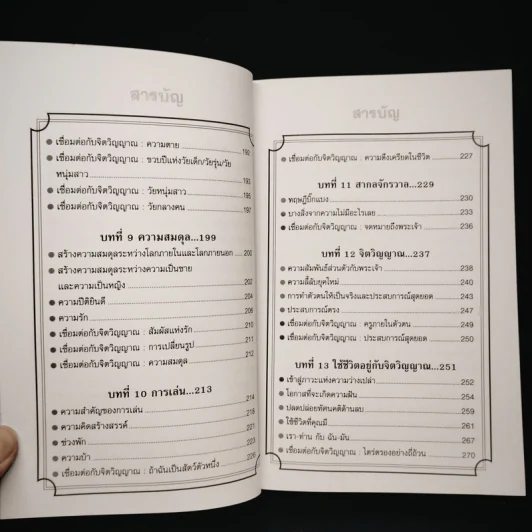 สารบัญ
เชื่อมต่อกับจิตวิญญาณ : ความตาย 190
เชื่อมต่อกับจิตวิญญาณ : ขวบปีแห่งวัยเด็ก/วัยรุ่น/วัย
หนุ่มสาว 193
เชื่อมต่อกับจิตวิญญาณ : วัยหนุ่มสาว 195
เชื่อมต่อกับจิตวิญญาณ : วัยกลางคน 197
บทที่ 9 ความสมดุล...199
สร้างความสมดุลระหว่างโลกภายในและโลกภายนอก 200
สร้างความสมดุลระหว่างความเป็นชาย
และความเป็นหญิง 202
ความปีติยินดี 204
ความรัก 206
เชื่อมต่อกับจิตวิญญาณ : สัมผัสแห่งรัก 210
เชื่อมต่อกับจิตวิญญาณ : การเปลี่ยนรูป 211
เชื่อมต่อกับจิตวิญญาณ : ความสมดุล 212
บทที่ 10 การเล่น...213
ความสำคัญของการเล่น 214
ความคิดสร้างสรรค์ 218
ช่วงพัก 221
ความบ้า
เชื่อมต่อกับจิตวิญญาณ : ถ้าฉันเป็นสัตว์ตัวหนึ่ง 226
สารบัญ
เชื่อมต่อกับจิตวิญญาณ : ความตึงเครียดในชีวิต 227
บทที่ 11 สากลจักรวาล...229
ทฤษฎีบิ๊กแบง 230
บางสิ่งจากความไม่มีอะไรเลย 233
เชื่อมต่อกับจิตวิญญาณ : จดหมายถึงพระเจ้า 236
บทที่ 12 จิตวิญญาณ...237
ความสัมพันธ์ส่วนตัวกับพระเจ้า 238
ความลี้ลับยุคใหม่ 240
การทำตัวตนให้เป็นจริงและประสบการณ์สุดยอด 243
ประสบการณ์ตรง 247
เชื่อมต่อกับจิตวิญญาณ : ครูภายในตัวตน 249
เชื่อมต่อกับจิตวิญญาณ : ประสบการณ์สุดยอด 250
บทที่ 13 ใช้ชีวิตอยู่กับจิตวิญญาณ...251
เข้าสู่ภาวะแห่งความว่างเปล่า 252
โอกาสที่จะเกิดความฝัน 254
ปลดปล่อยทัศนคติด้านลบ 259
ใช้ชีวิตที่คุณมี 261
เรา-ท่าน กับ ฉัน-มัน 267
เชื่อมต่อกับจิตวิญญาณ : ใคร่ครองอย่างถี่ถ้วน 270